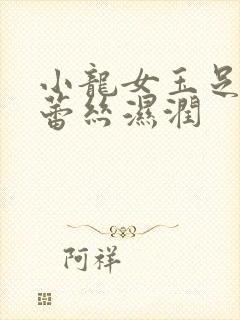 小龍女玉足
蕾絲濕潤
阿祥